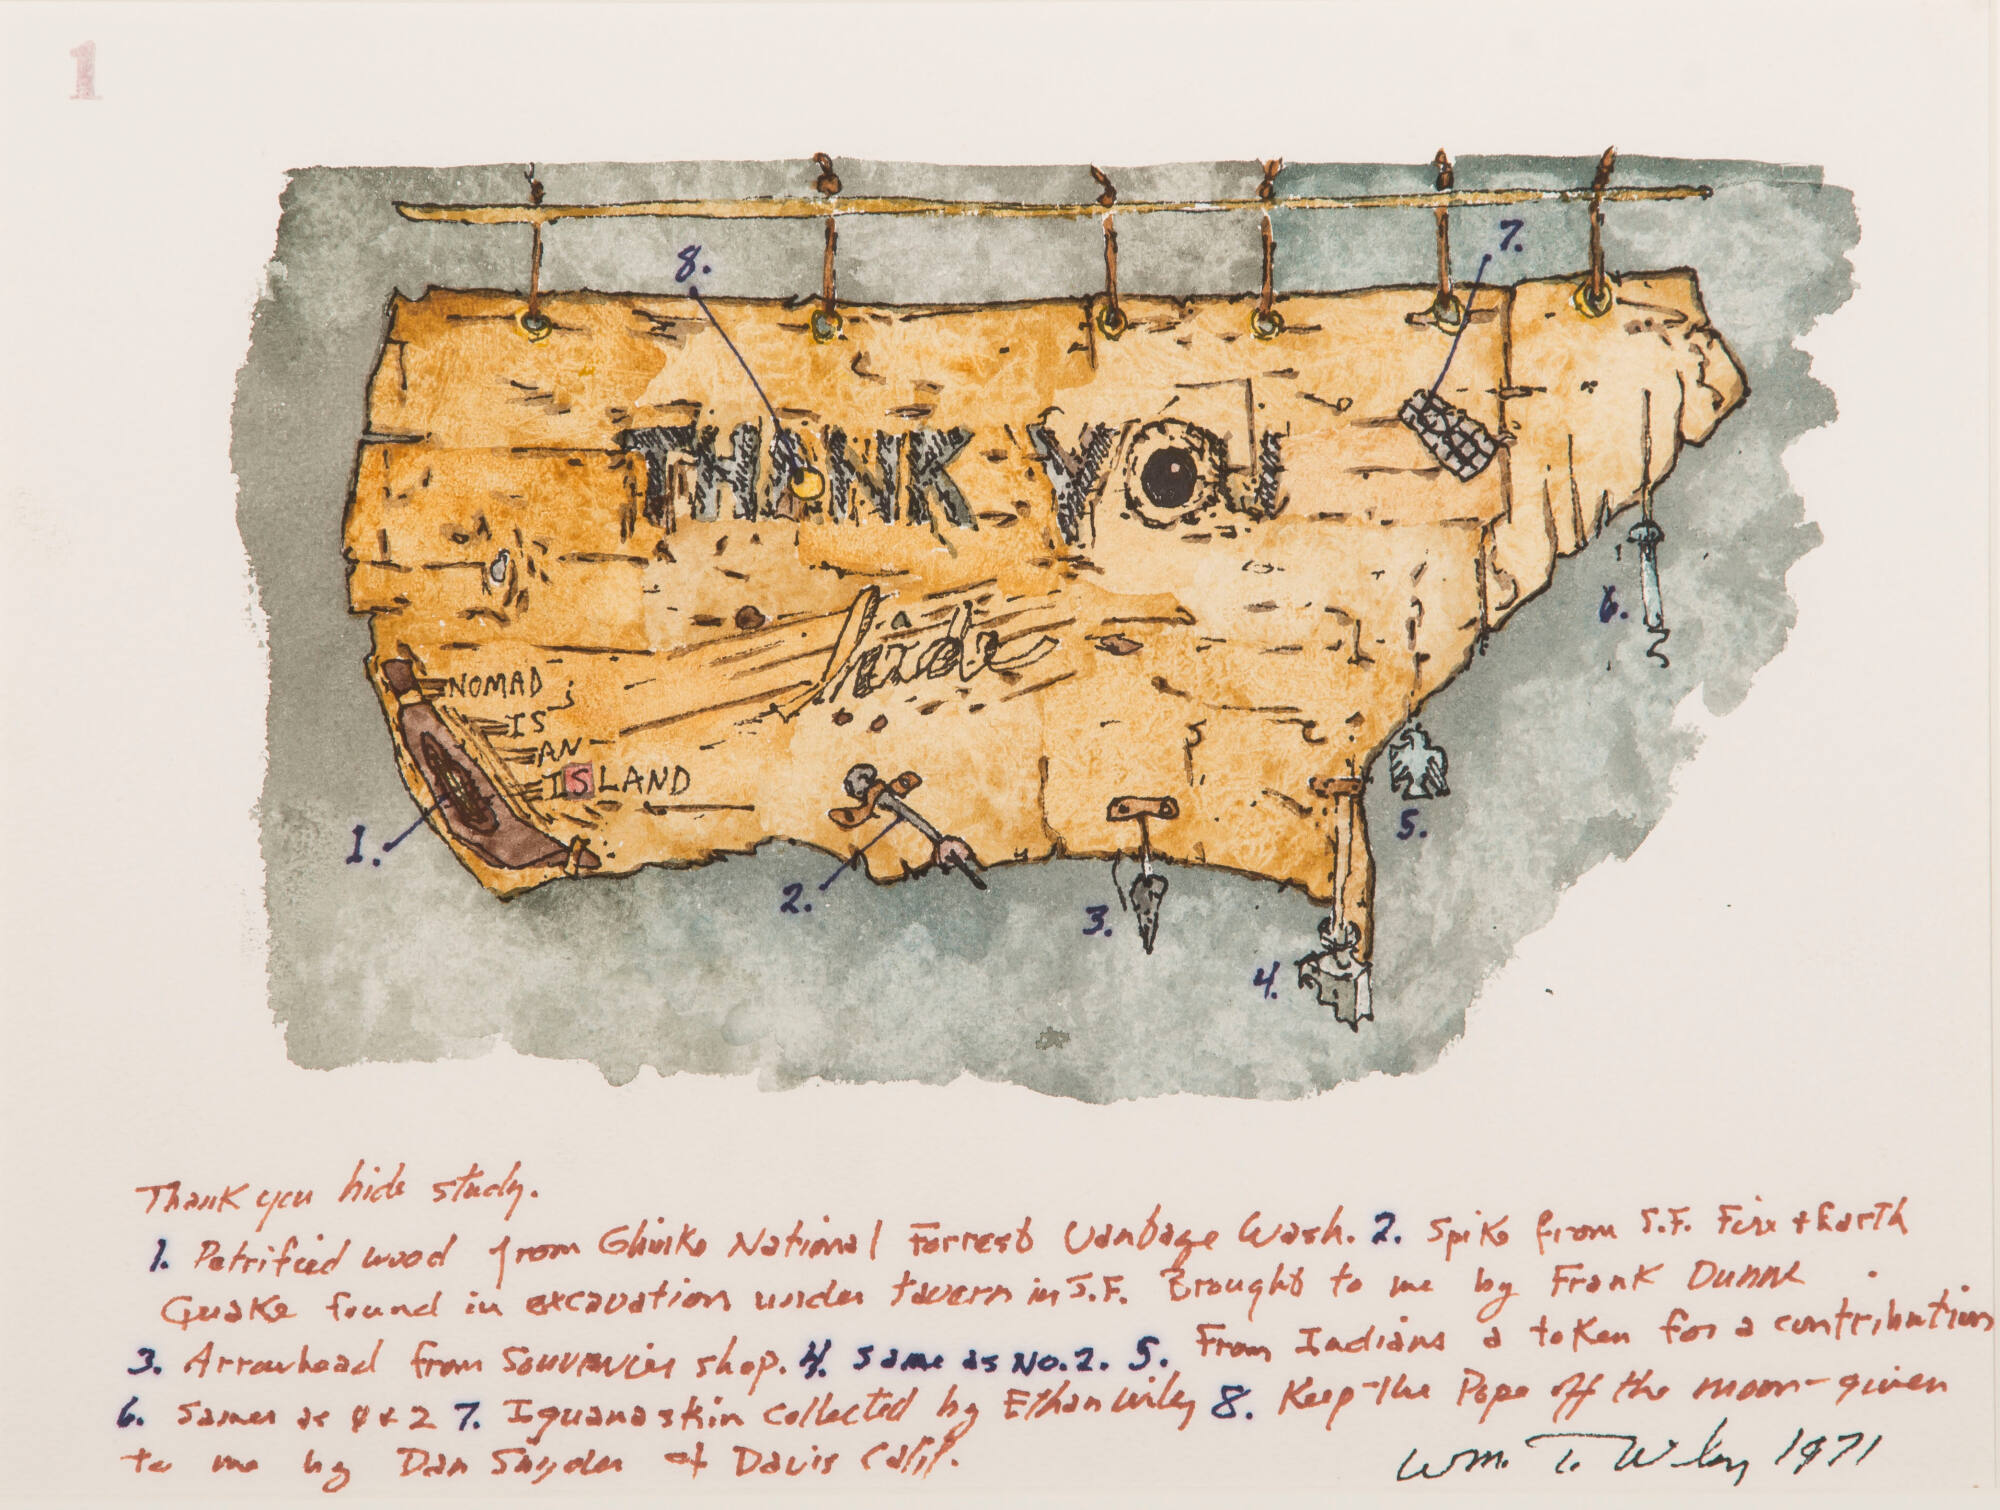 1
8.
7.
THANK YOU
6.
hide
NOMAD
IS
AN
ISLAND
5.
1.
2.
3.
4.
Thank you hide study.
1. Petrified wood from Ghinko National Forrest Vanbage Wash. 2. Spike from S.F. Fire + Earth
Quake found in excavation under tavern in S.F. Brought to me by Frank Dunne
3. Arrowhead from souvenir shop. 4. same as No. 2. 5. From Indians a token for a contribution
6. Same as 4 + 2 7. Iguana skin collected by Ethan Wiley 8. Keep the Pope off the moon - given
to me by Dan Snyder of Davis Calif.
Wm. T. Wiley 1971